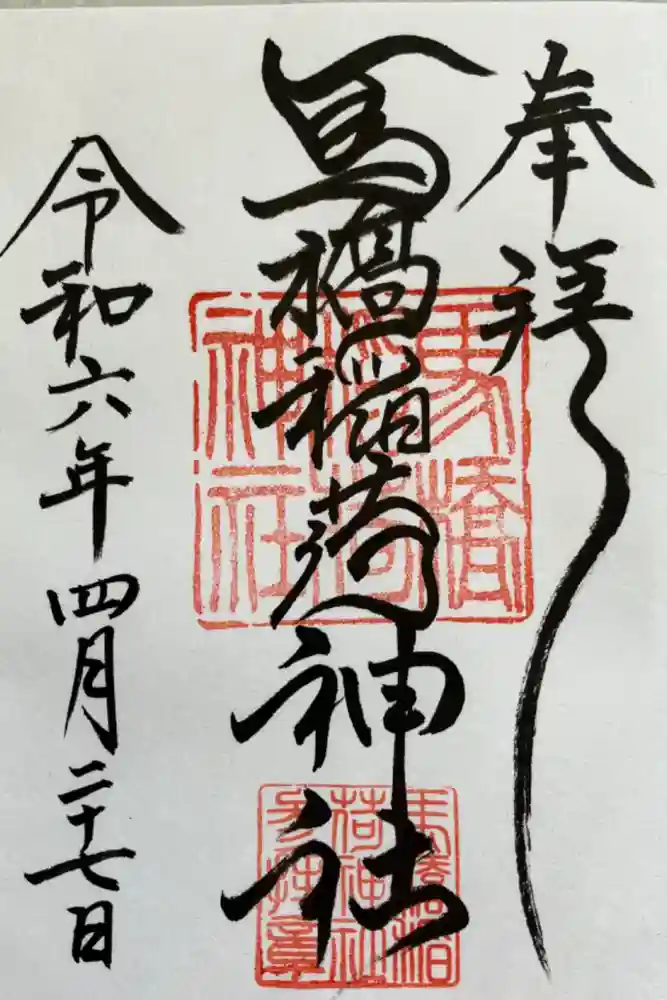 奉拝
馬橋稲荷神社
令和六年四月二十七日
馬橋
稲荷
神社
馬橋稲
荷神社
参拝章